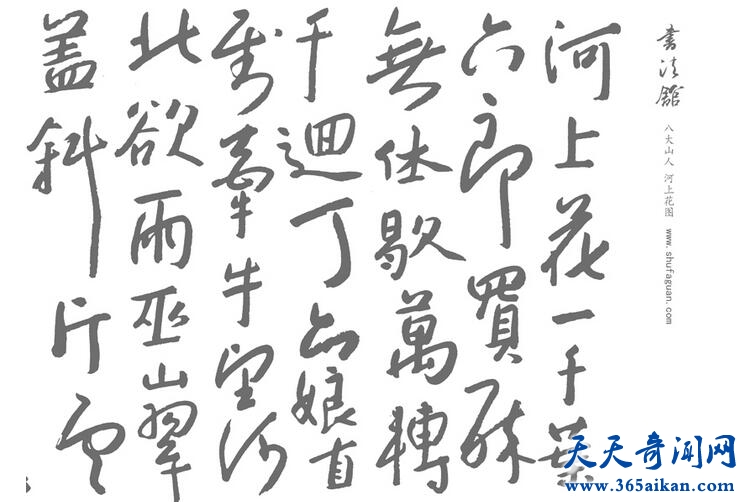 書法館
八大山人 河上花图 www.shufaguan.com
河上花一千葉
六郎買醉
無休歇萬轉
千迴丁六娘直
到牽牛望河
北欲雨巫山翠
盖斜片雲
天天奇闻网
www.365aikan.com